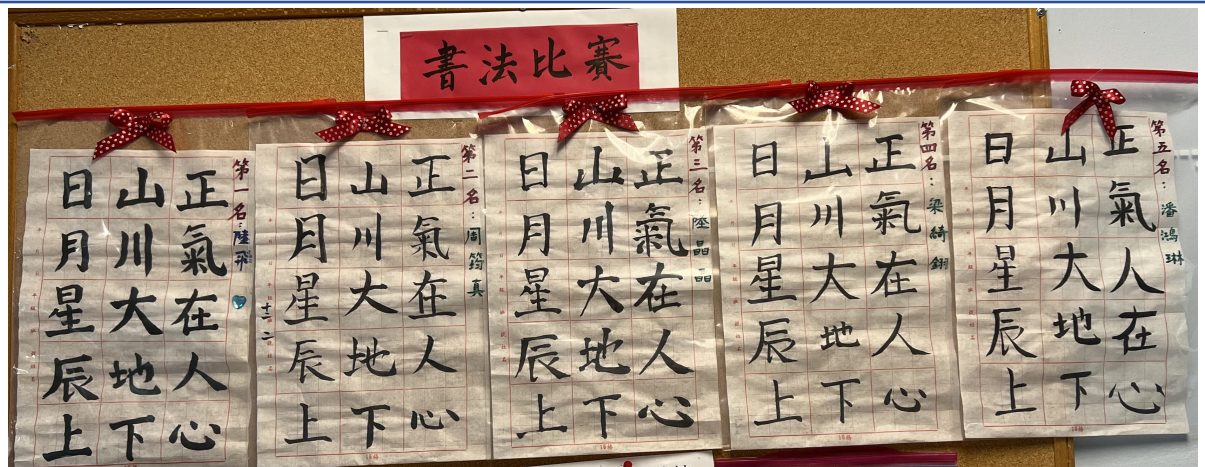 書法比賽
第一名:陸飛
正氣在人心
山川大地下
日月星辰上
第二名:周筠真
正氣在人心
山川大地下
日月星辰上
十二
第三名:陸晶晶
正氣在人心
山川大地下
日月星辰上
第四名:梁綺
正氣在人心
山川大地下
日月星辰上
第五名:潘鴻琳
正氣人在心
山川大地下
日月星辰上